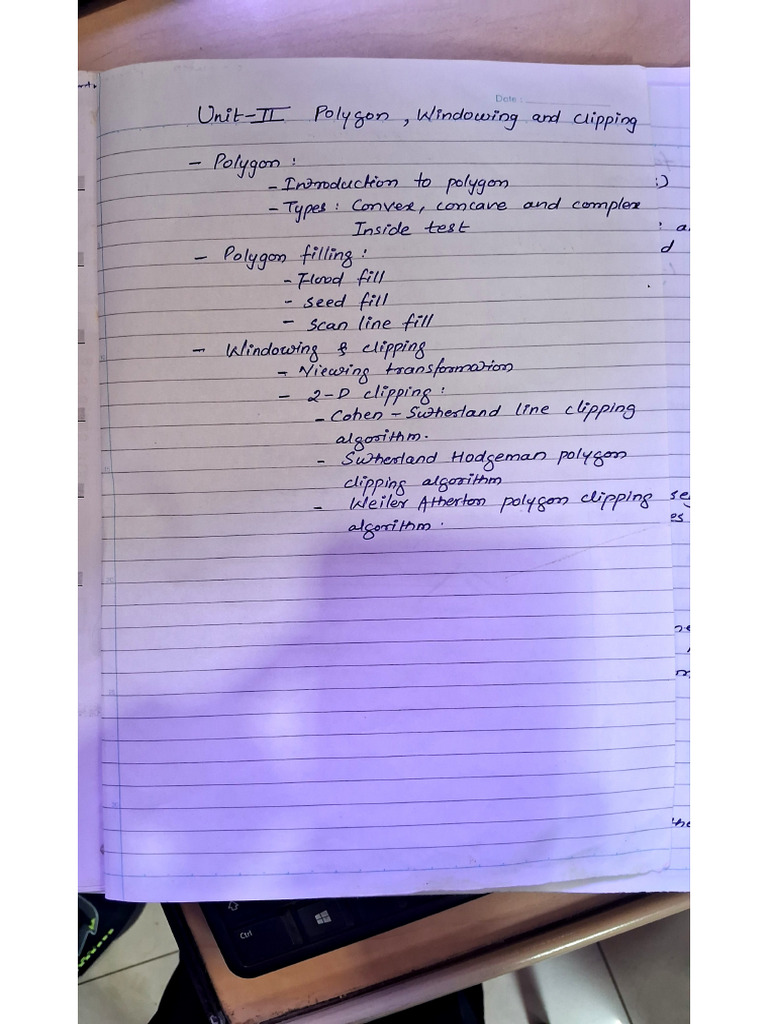 Date :
Unit-II Polygon, Windowing and clipping
- Polygon :
- Introduction to polygon
- Types : Convex, concave and complex
Inside test
- Polygon filling :
- Flood fill
- seed fill
- scan line fill
- Windowing & clipping
- Viewing transformation
- 2-D clipping :
- Cohen - Sutherland line clipping
algorithm.
- Sutherland Hodgeman polygon
clipping algorithm
- Weiler Atherton polygon clipping
algorithm.
Ctrl